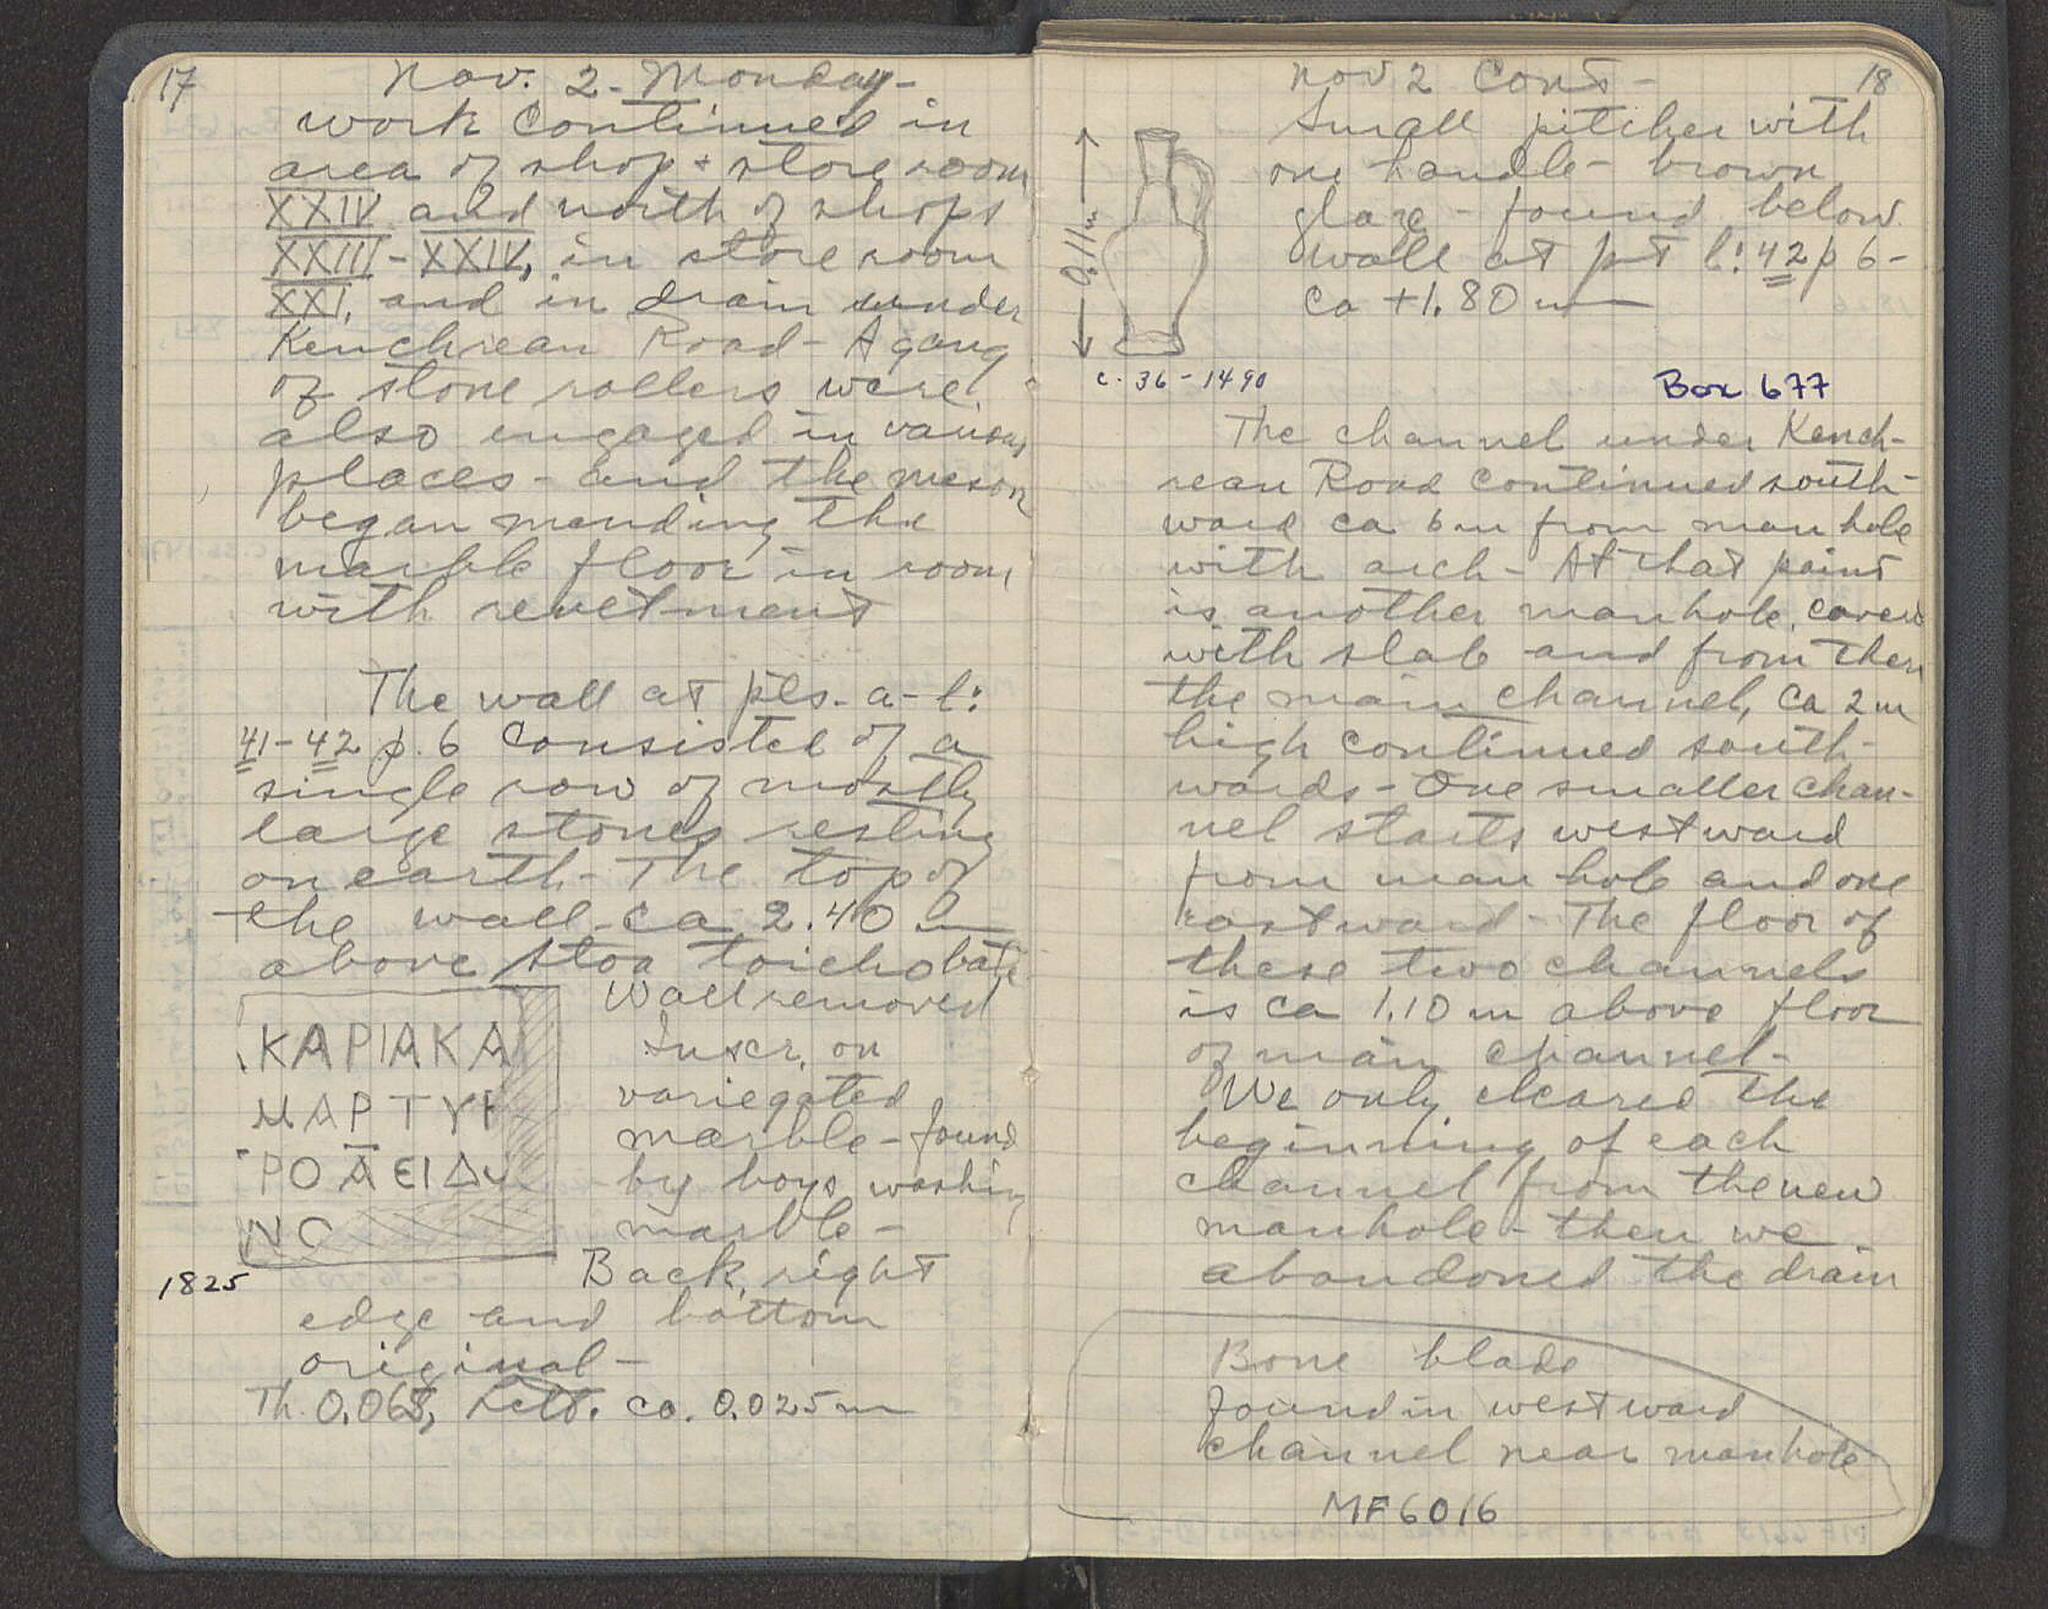 17
Nov. 2 - Monday -
work continued in
area of shop + store room
XXIV and north of shops
XXIII - XXIV, in store room
XXI, and in drain under
Kenchrean Road - A gang
of stone rollers were
also engaged in various
places - and the meson
began mending the
marble floor in room
with revetment
The wall at pts. a - b:
41-42 p. 6 consisted of a
single row of mostly
large stones resting
on earth - The top of
the wall ca 2.40 m
above stoa toichobate
Wall removed
ΚΑΡΙΑΚΑ
ΜΑΡΤΥΡ
ΡΟΑΕΙΔ
ΝΟ
Inscr. on
variegated
marble - found
by boys washing
marble -
1825
Back, right
edge and bottom
original -
Th. 0.068, ca. 0.025 m
18
Nov 2 Cont -
Small pitcher with
one handle - brown
glaze - found below
wall at pt b: 42 p 6 -
ca +1.80 m
0.11m
c. 36 - 1490
Box 677
The channel under Kench-
rean Road continued south-
ward ca 6 m from man hole
with arch - At that point
is another manhole, covered
with slab and from there
the main channel, ca 2 m
high continued south-
wards - One smaller chan-
nel starts westward
from man hole and one
eastward - The floor of
these two channels
is ca 1.10 m above floor
of main channel -
We only cleared the
beginning of each
channel from the new
manhole - then we
abandoned the drain
Bone blade
found in westward
channel near manhole
MF 6016